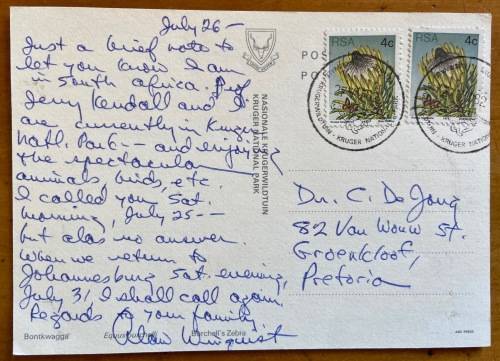 July 26 -
Just a brief note to
let you know I am
in South Africa. Prof
Jerry Kendall and I
are currently in Kruger
Natl. Park -- and enjoy
the spectacular
animals, birds, etc.
I called you Sat.
morning, July 25 --
but alas no answer.
When we return to
Johannesburg Sat. evening,
July 31, I shall call again.
Regards to your family
Alan
Bontkwagga
Burchell's Zebra
NASIONALE KRUGERWILDTUIN
KRUGER NATIONAL PARK
POS
PO
RSA 4c
RSA 4c
KRUGER NATIONAL PARK
KRUGER NATIONAL PARK
Dr. C. De Jong
82 Van Wouw St.
Groenkloof,
Pretoria